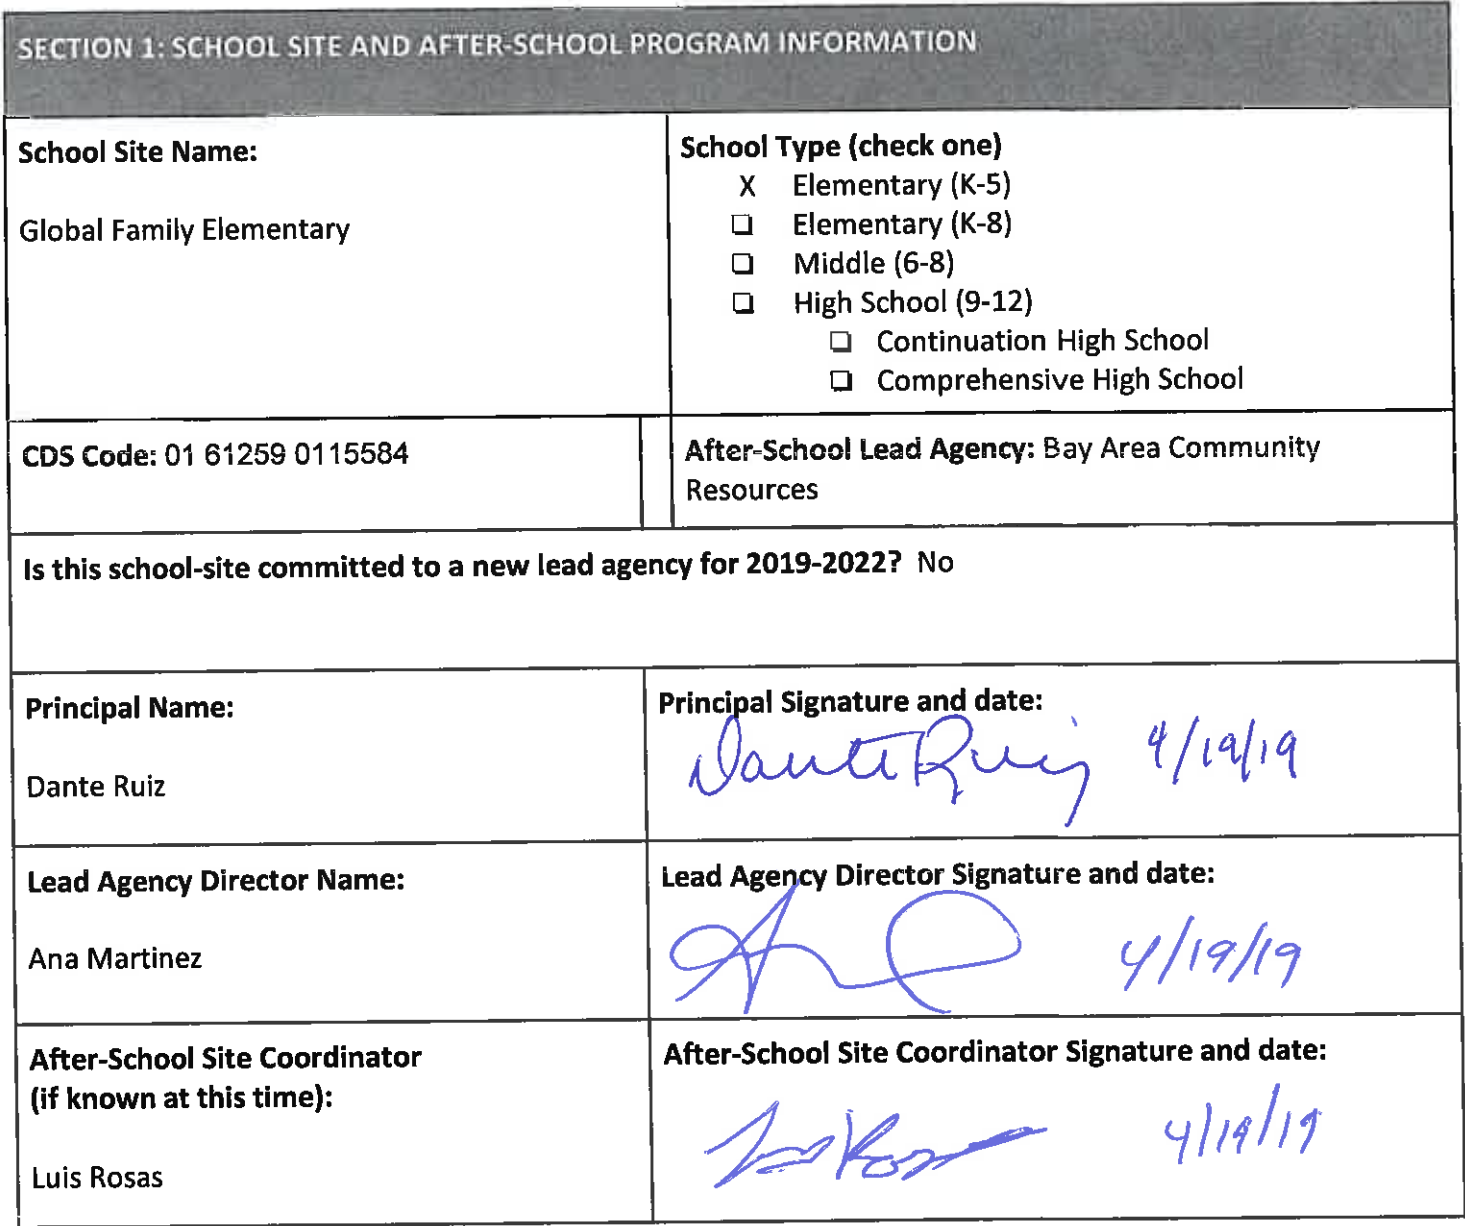 SECTION 1: SCHOOL SITE AND AFTER-SCHOOL PROGRAM INFORMATION
School Site Name:
Global Family Elementary
School Type (check one)
X Elementary (K-5)
❏ Elementary (K-8)
❏ Middle (6-8)
❏ High School (9-12)
❏ Continuation High School
❏ Comprehensive High School
CDS Code: 01 61259 0115584
After-School Lead Agency: Bay Area Community
Resources
Is this school-site committed to a new lead agency for 2019-2022? No
Principal Name:
Dante Ruiz
Principal Signature and date:
Dante Ruiz 4/19/19
Lead Agency Director Name:
Ana Martinez
Lead Agency Director Signature and date:
4/19/19
After-School Site Coordinator
(if known at this time):
Luis Rosas
After-School Site Coordinator Signature and date:
4/19/19